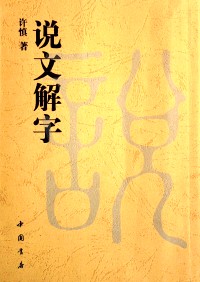 许慎 著
说文解字
中国书店
說